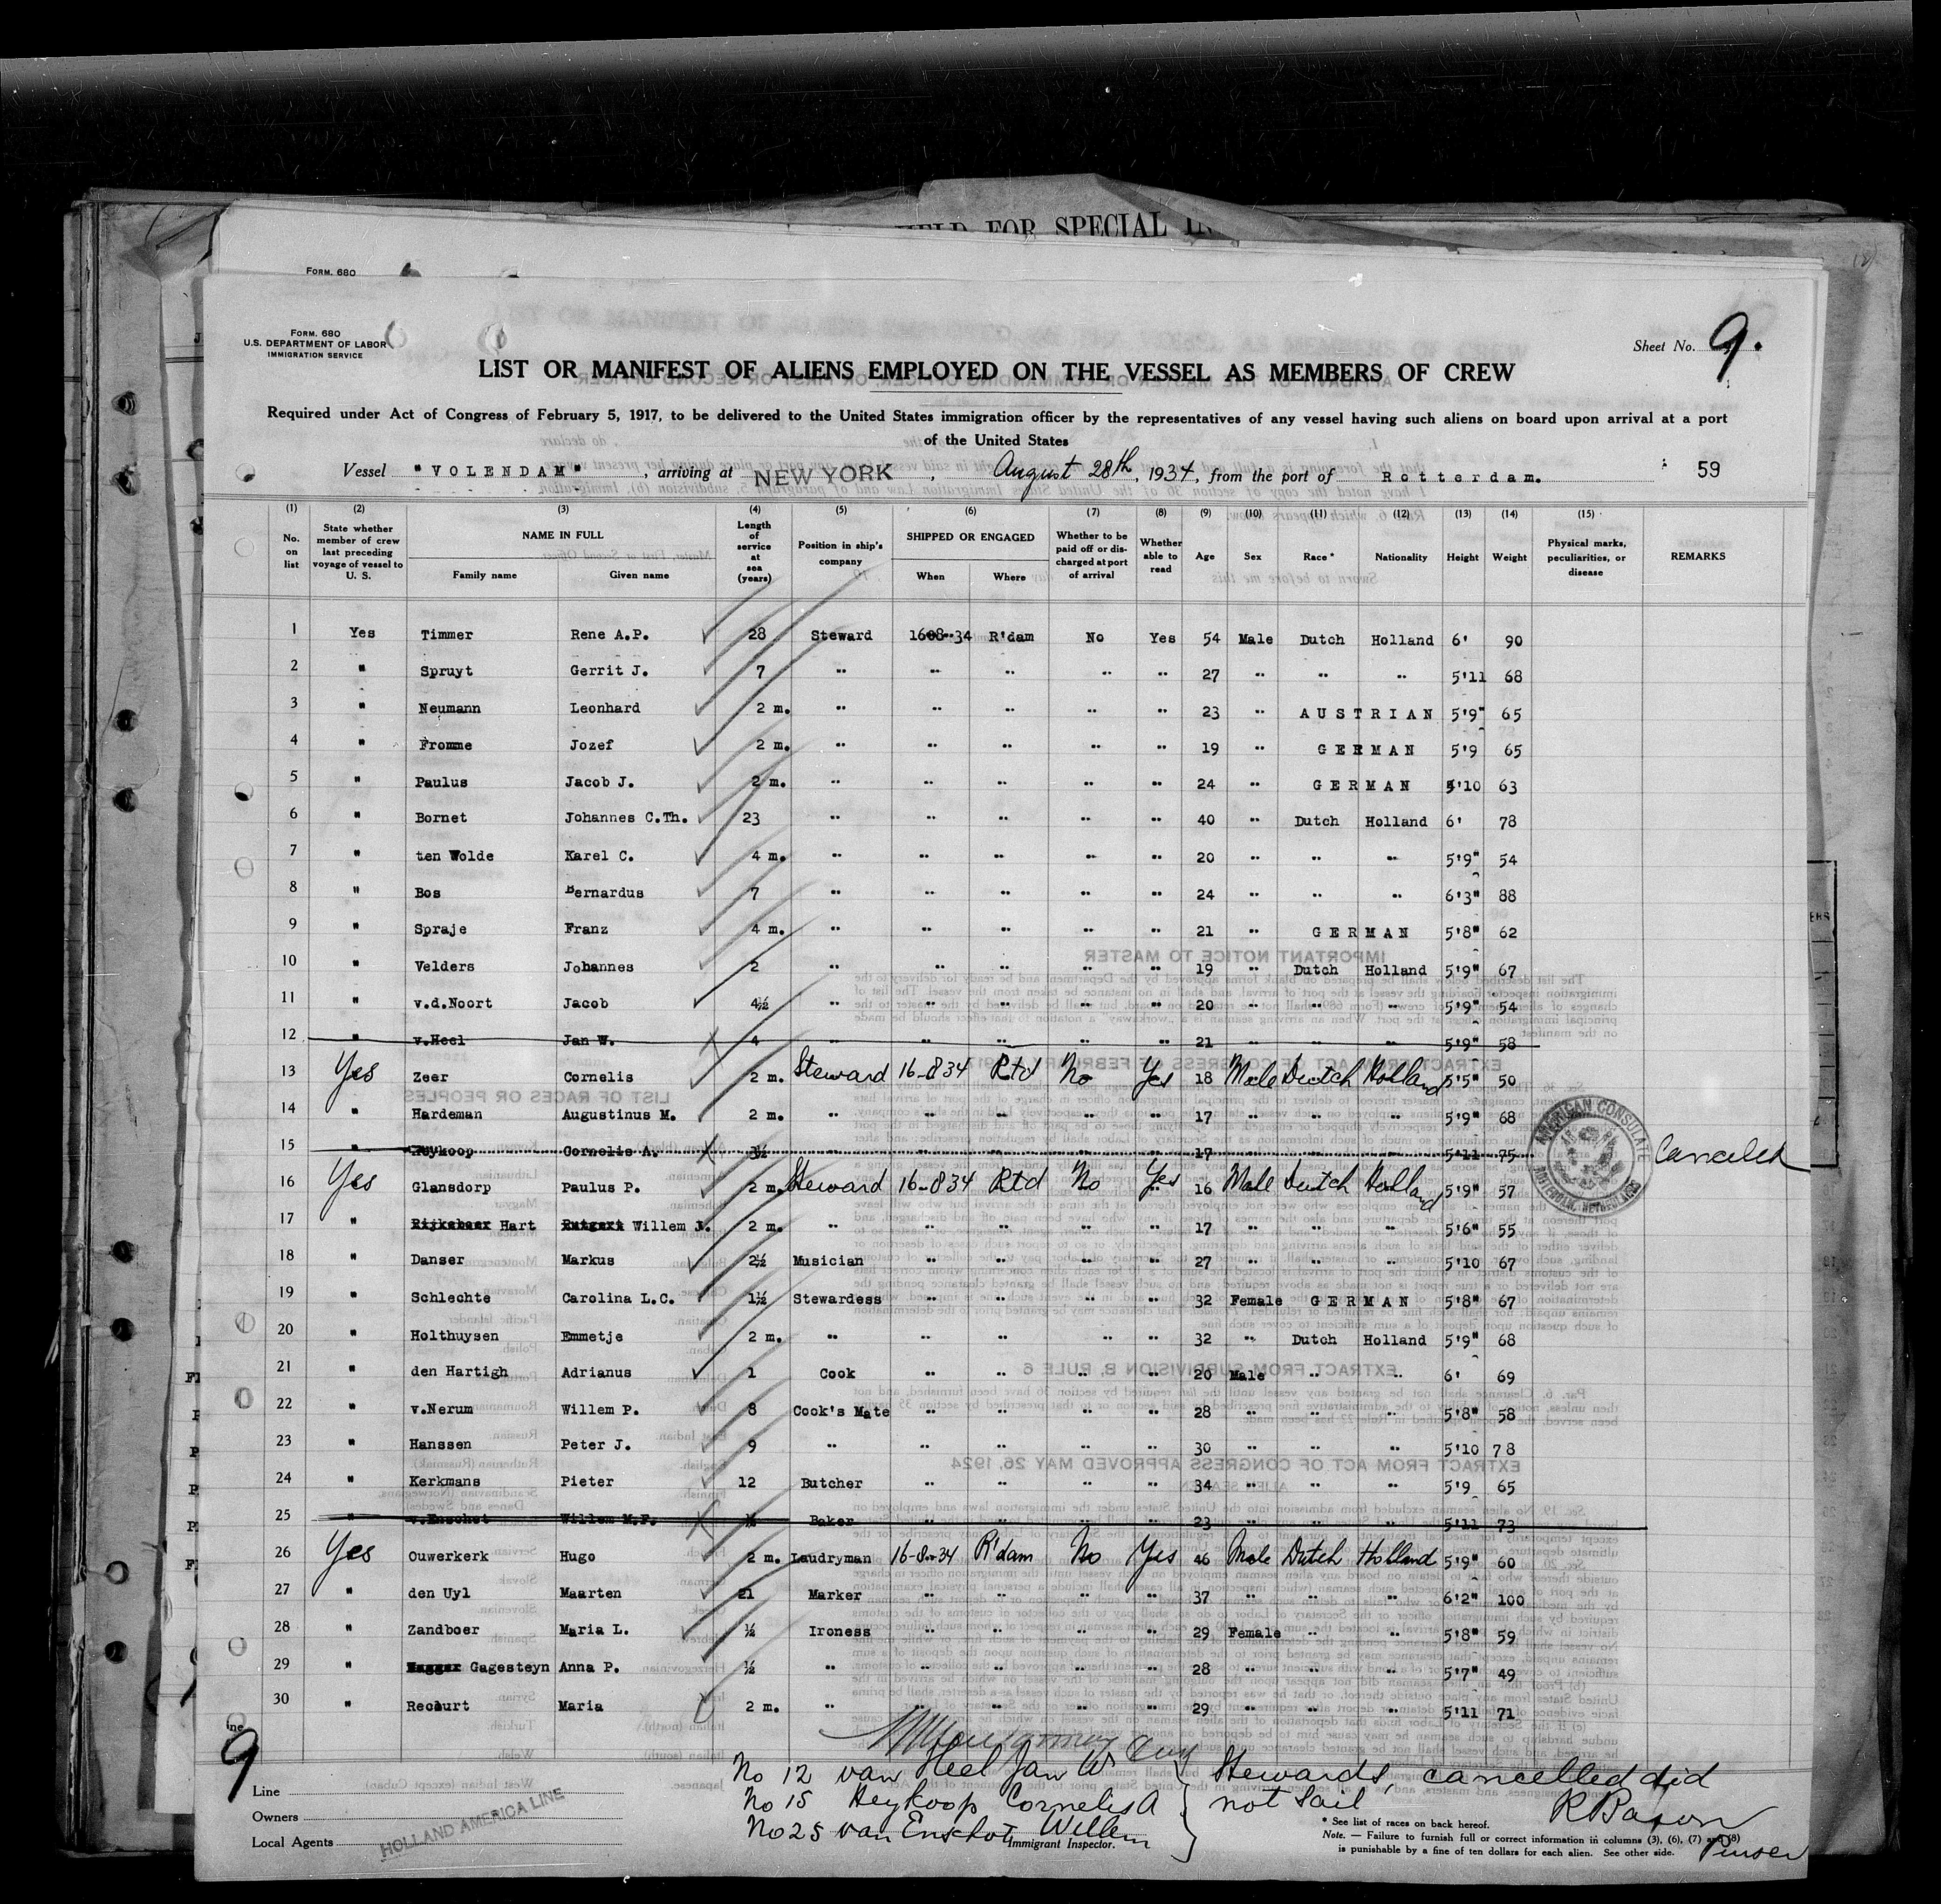 HELD FOR SPECIAL IN
FORM. 680
FORM. 680
U.S. DEPARTMENT OF LABOR
IMMIGRATION SERVICE
Sheet No. 9.
LIST OR MANIFEST OF ALIENS EMPLOYED ON THE VESSEL AS MEMBERS OF CREW
Required under Act of Congress of February 5, 1917, to be delivered to the United States immigration officer by the representatives of any vessel having such aliens on board upon arrival at a port
of the United States
Vessel "VOLENDAM", arriving at NEW YORK, August 28th, 1934, from the port of Rotterdam. 59
(1) (2) (3) (4) (5) (6) (7) (8) (9) (10) (11) (12) (13) (14) (15)
No. on list | State whether member of crew last preceding voyage of vessel to U. S. | NAME IN FULL Family name Given name | Length of service at sea (years) | Position in ship's company | SHIPPED OR ENGAGED When Where | Whether to be paid off or discharged at port of arrival | Whether able to read | Age | Sex | Race* | Nationality | Height | Weight | Physical marks, peculiarities, or disease | REMARKS
1 Yes Timmer Rene A.P. 28 Steward 16-8-34 R'dam No Yes 54 Male Dutch Holland 6' 90
2 " Spruyt Gerrit J. 7 " " " " " 27 " " " 5'11 68
3 " Neumann Leonhard 2 m. " " " " " 23 " AUSTRIAN 5'9" 65
4 " Fromme Jozef 2 m. " " " " " 19 " GERMAN 5'9 65
5 " Paulus Jacob J. 2 m. " " " " " 24 " GERMAN 5'10 63
6 " Bornet Johannes C.Th. 23 " " " " " 40 " Dutch Holland 6' 78
7 " ten Wolde Karel C. 4 m. " " " " " 20 " " " 5'9" 54
8 " Bos Bernardus 7 " " " " " 24 " " " 6'3" 88
9 " Spraje Franz 4 m. " " " " " 21 " GERMAN 5'8" 62
10 " Velders Johannes 2 " " " " " 19 " Dutch Holland 5'9" 67
11 " v.d.Noort Jacob 4½ " " " " " 20 " " " 5'9" 54
12 " v.Heel Jan W. 4 " " " " " 21 " " " 5'9" 58
13 Yes Zeer Cornelis 2 m. Steward 16-8 34 Rtd No Yes 18 Male Dutch Holland 5'5" 50
14 " Hardeman Augustinus M. 2 m. " " " " " 17 " " " 5'9" 68
15 " Heykoop Cornelis A. 3½ 17 5'11 75 Canceled
16 Yes Glansdorp Paulus P. 2 m. Steward 16-8 34 Rtd No Yes 16 Male Dutch Holland 5'9" 57
17 " Rijksbaer Hart Rutgert Willem J. 2 m. " " " " " 17 " " " 5'6" 55
18 " Danser Markus 2½ Musician " " " " 27 " " " 5'10 67
19 " Schlechte Carolina L.C. 1½ Stewardess " " " " 32 Female GERMAN 5'8" 67
20 " Holthuysen Emmetje 2 m. " " " " " 32 " Dutch Holland 5'9" 68
21 " den Hartigh Adrianus 1 Cook " " " " 20 Male " " 6' 69
22 " v.Nerum Willem P. 8 Cook's Mate " " " " 28 " " " 5'8" 58
23 " Hanssen Peter J. 9 " " " " " 30 " " " 5'10 78
24 " Kerkmans Pieter 12 Butcher " " " " 34 " " " 5'9 65
25 " v.Enschot Willem M.F. ½ Baker " " " " 23 " " " 5'11 73
26 Yes Ouwerkerk Hugo 2 m. Laudryman 16-8-34 R'dam No Yes 46 Male Dutch Holland 5'9" 60
27 " den Uyl Maarten 21 Marker " " " " 37 " " " 6'2" 100
28 " Zandboer Maria L. ½ Ironess " " " " 29 Female " " 5'8" 59
29 " Gagesteyn Anna P. ½ " " " " " 28 " " " 5'7" 49
30 " Recourt Maria 2 m. " " " " " 29 " " " 5'11 71
AMERICAN CONSULATE
ROTTERDAM, NETHERLANDS
9
No 12 van Heel Jan W
No 15 Heykoop Cornelis A
No 25 van Enschot Willem
Stewards, cancelled did
not sail
R Bason
Purser
Line
Owners HOLLAND AMERICA LINE
Local Agents
Immigrant Inspector.
* See list of races on back hereof.
Note. — Failure to furnish full or correct information in columns (3), (6), (7) and (8)
is punishable by a fine of ten dollars for each alien. See other side.